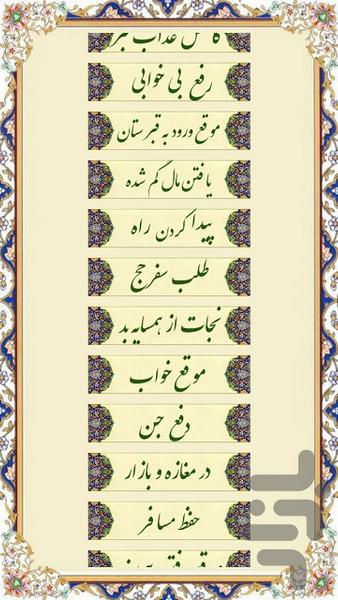 رفع بی خوابی
موقع ورود به قبرستان
یافتن مال گم شده
پیدا کردن راه
طلب سفر حج
نجات از همسایه بد
موقع خواب
دفع جن
در مغازه و بازار
حفظ مسافر
بازار